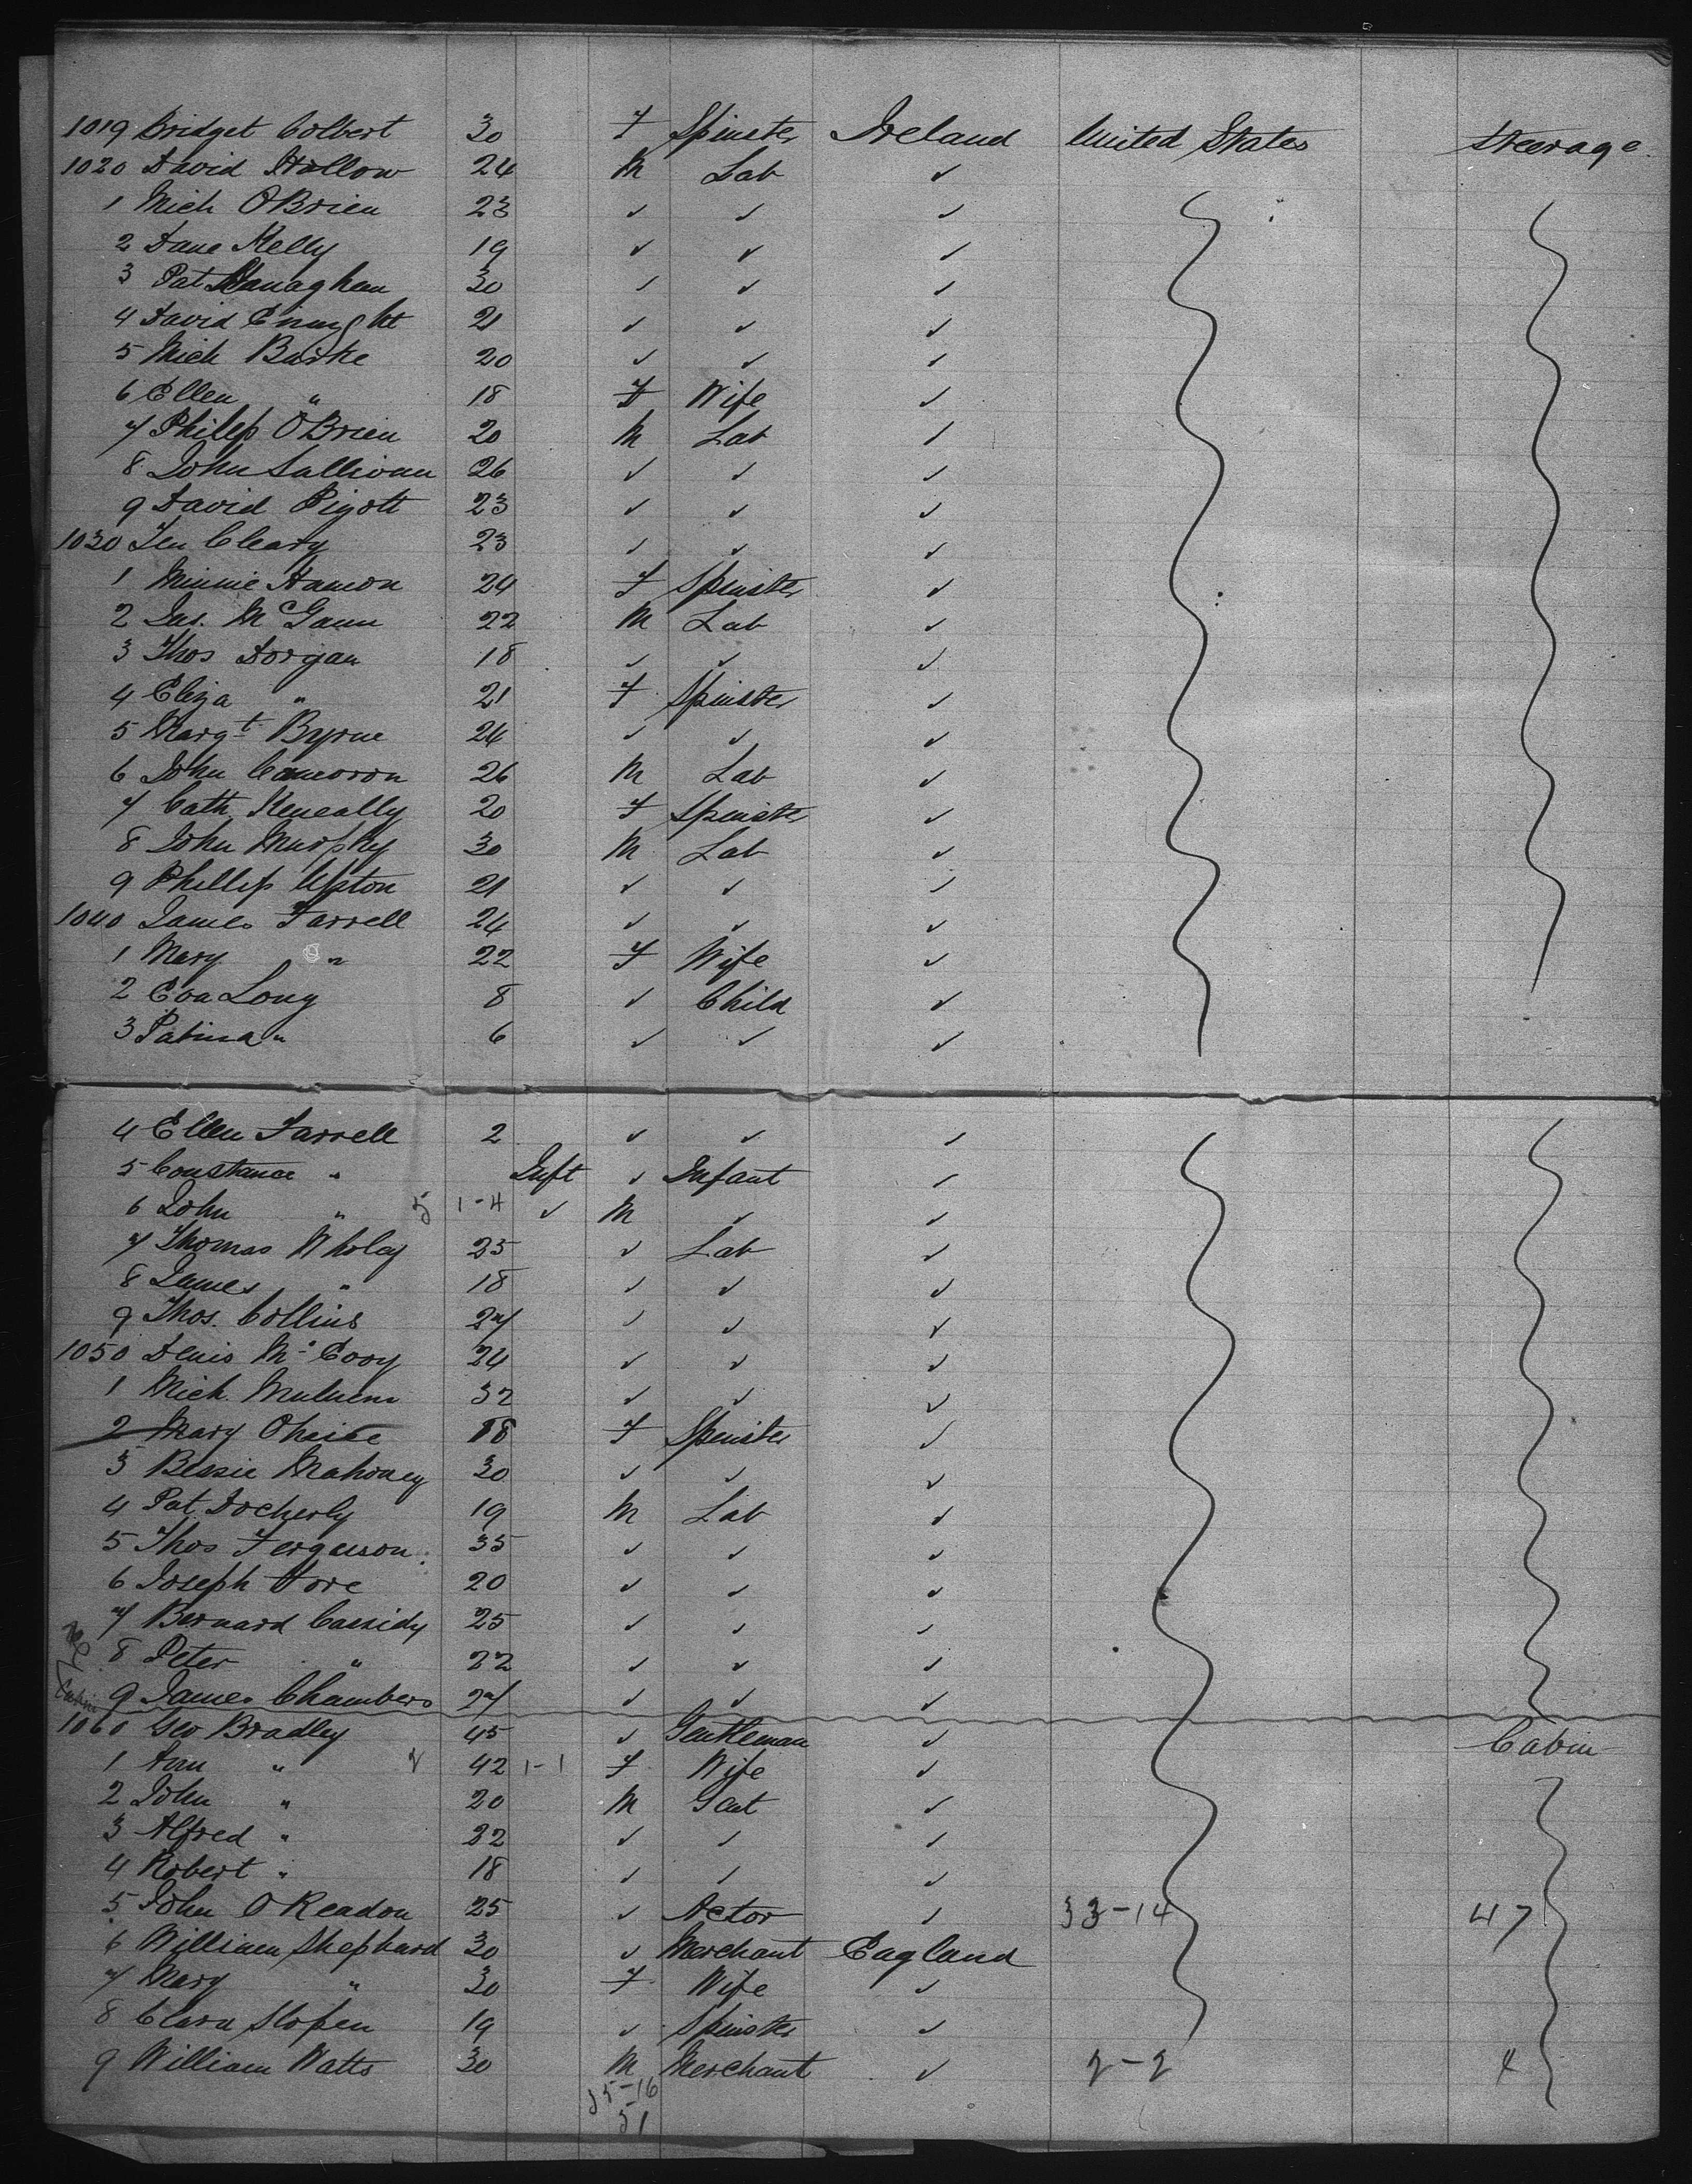 1019 Bridget Colbert 30 F Spinster Ireland United States Steerage
1020 David Hallow 24 M Lab ✓
1 Mich OBrien 23 ✓ ✓ ✓
2 Dane Kelly 19 ✓ ✓ ✓
3 Pat Hanaghan 30 ✓ ✓ ✓
4 David Enright 21 ✓ ✓ ✓
5 Mich Burke 20 ✓ ✓ ✓
6 Ellen " 18 F Wife ✓
7 Philip OBrien 20 M Lab ✓
8 John Sullivan 26 ✓ ✓ ✓
9 David Pigott 23 ✓ ✓ ✓
1030 Jer Cleary 23 ✓ ✓ ✓
1 Minnie Hamon 24 F Spinster ✓
2 Jas. McGann 22 M Lab ✓
3 Thos Dorgan 18 ✓ ✓ ✓
4 Eliza " 21 F Spinster ✓
5 Margt Byrne 24 ✓ ✓ ✓
6 John Cameron 26 M Lab ✓
7 Cath Keneally 20 F Spinster ✓
8 John Murphy 30 M Lab ✓
9 Phillip Upton 21 ✓ ✓ ✓
1040 James Farrell 24 ✓ ✓ ✓
1 Mary " 22 F Wife ✓
2 Eva Long 8 ✓ Child ✓
3 " 6 ✓ ✓ ✓
4 Ellen Farrell 2 ✓ ✓ ✓
5 Constance " Inft ✓ Infant ✓
6 John " 5 1-4 ✓ M ✓ ✓
7 Thomas Wholey 25 ✓ Lab ✓
8 James " 18 ✓ ✓ ✓
9 Thos. Collins 27 ✓ ✓ ✓
1050 Denis McEvoy 24 ✓ ✓ ✓
1 Mich. 32 ✓ ✓ ✓
2 Mary 18 F Spinster ✓
3 Bessie Mahoney 30 ✓ ✓ ✓
4 Pat Docherty 19 M Lab ✓
5 Thos Ferguson 35 ✓ ✓ ✓
6 Joseph Hore 20 ✓ ✓ ✓
7 Bernard Cassidy 25 ✓ ✓ ✓
8 Peter " 22 ✓ ✓ ✓
9 James Chambers 27 ✓ ✓ ✓
Cabin
1060 Geo Bradley 45 ✓ Gentleman ✓ Cabin
1 Ann " 2 42 1-1 F Wife ✓
2 John " 20 M Gent ✓
3 Alfred " 22 ✓ ✓ ✓
4 Robert " 18 ✓ ✓ ✓
5 John O Readon 25 ✓ Actor ✓ 33-14 47
6 William Shephard 30 ✓ Merchant England
7 Mary " 30 F Wife ✓
8 Clara Slopen 19 ✓ Spinster ✓
9 William Watts 30 M Merchant ✓ 2-2 4
35-16
51